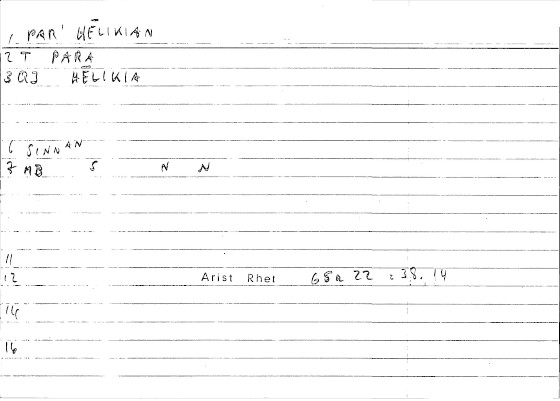 1 PAR' HĒLIKIAN
2 T PARA
3 QJ HĒLIKIA
6 SINNAN
7 AB S N N
11
12 Arist Rhet 65a 22 : 38.14
14
16